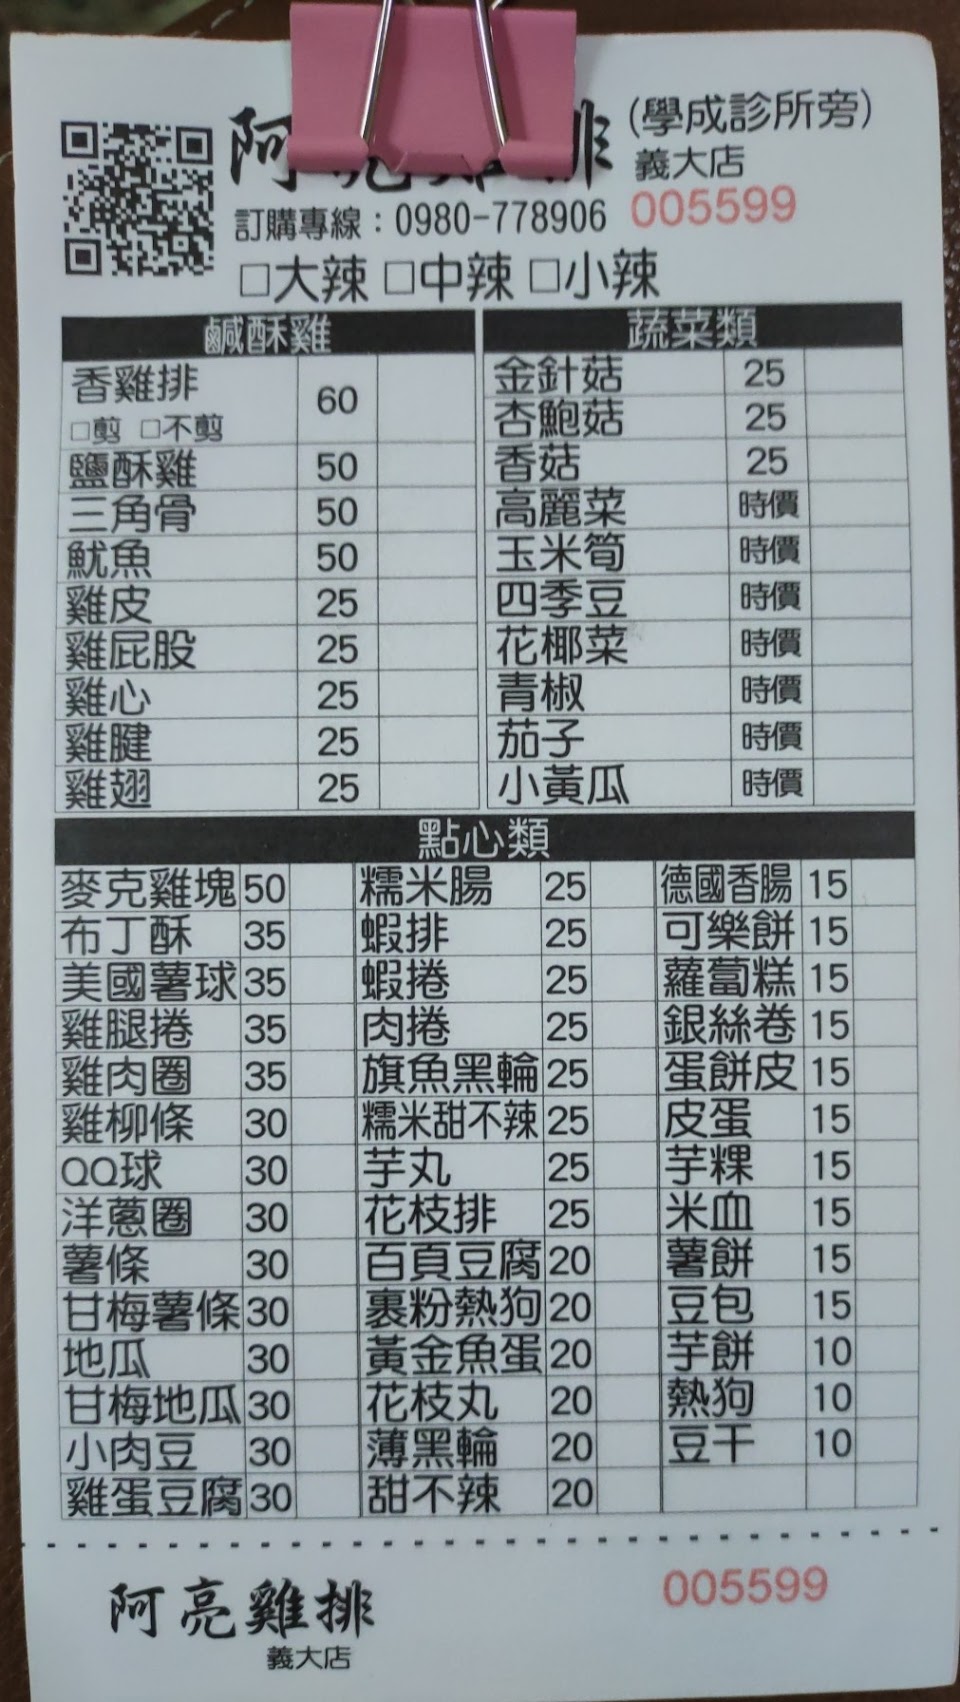 阿亮雞排 (學成診所旁)
義大店
訂購專線：0980-778906 005599
□大辣 □中辣 □小辣
鹹酥雞 蔬菜類
香雞排 60 金針菇 25
□剪 □不剪 杏鮑菇 25
鹽酥雞 50 香菇 25
三角骨 50 高麗菜 時價
魷魚 50 玉米筍 時價
雞皮 25 四季豆 時價
雞屁股 25 花椰菜 時價
雞心 25 青椒 時價
雞腱 25 茄子 時價
雞翅 25 小黃瓜 時價
點心類
麥克雞塊 50 糯米腸 25 德國香腸 15
布丁酥 35 蝦排 25 可樂餅 15
美國薯球 35 蝦捲 25 蘿蔔糕 15
雞腿捲 35 肉捲 25 銀絲卷 15
雞肉圈 35 旗魚黑輪 25 蛋餅皮 15
雞柳條 30 糯米甜不辣 25 皮蛋 15
QQ球 30 芋丸 25 芋粿 15
洋蔥圈 30 花枝排 25 米血 15
薯條 30 百頁豆腐 20 薯餅 15
甘梅薯條 30 裹粉熱狗 20 豆包 15
地瓜 30 黃金魚蛋 20 芋餅 10
甘梅地瓜 30 花枝丸 20 熱狗 10
小肉豆 30 薄黑輪 20 豆干 10
雞蛋豆腐 30 甜不辣 20
阿亮雞排 005599
義大店